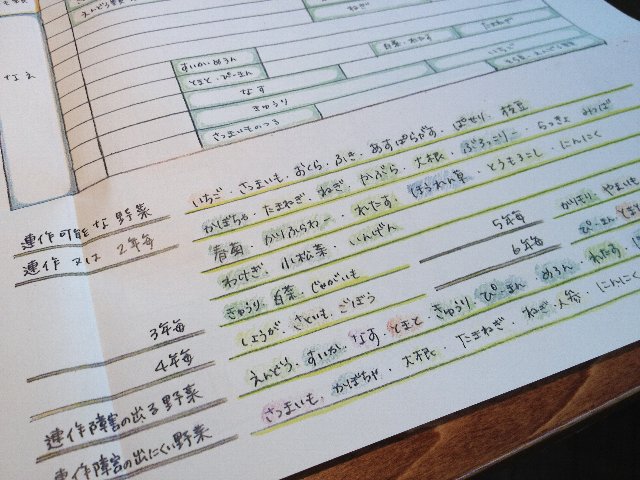 ねぎ
なえ
白菜・れたす
たまねぎ
すいかめろん
とまと・ぴーまん
いちご
なす
きゅうり
さつまいものつる
連作可能な野菜
いちご・さつまいも・おくら・ふき・あすぱらがす・ぱせり・枝豆
かぼちゃ・たまねぎ・ねぎ・かぶら・大根・ぶろっこりー・らっきょ・みつば
連作又は2年毎
春菊・かりふらわー・れたす・ほうれん草・とうもろこし・にんにく
わけぎ・小松菜・いんげん
5年毎
かりもり・やまいも
3年毎
きゅうり・白菜・じゃがいも
6年毎
ぴーまん
4年毎
しょうが・さといも・ごぼう
連作障害の出る野菜
えんどう・すいか・なす・とまと・きゅうり・ぴーまん・めろん・れたす
連作障害の出にくい野菜
さつまいも・かぼちゃ・大根・たまねぎ・ねぎ・人参・にんにく